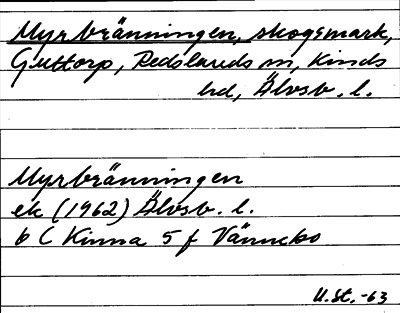 Myrbränningen, skogsmark,
Guttorp, Redslareds sn, Kinds
hd, Älvsb. l.
Myrbränningen
ek (1962) Älvsb. l.
6 C Kinna 5 f Vännebo
U.St.-63